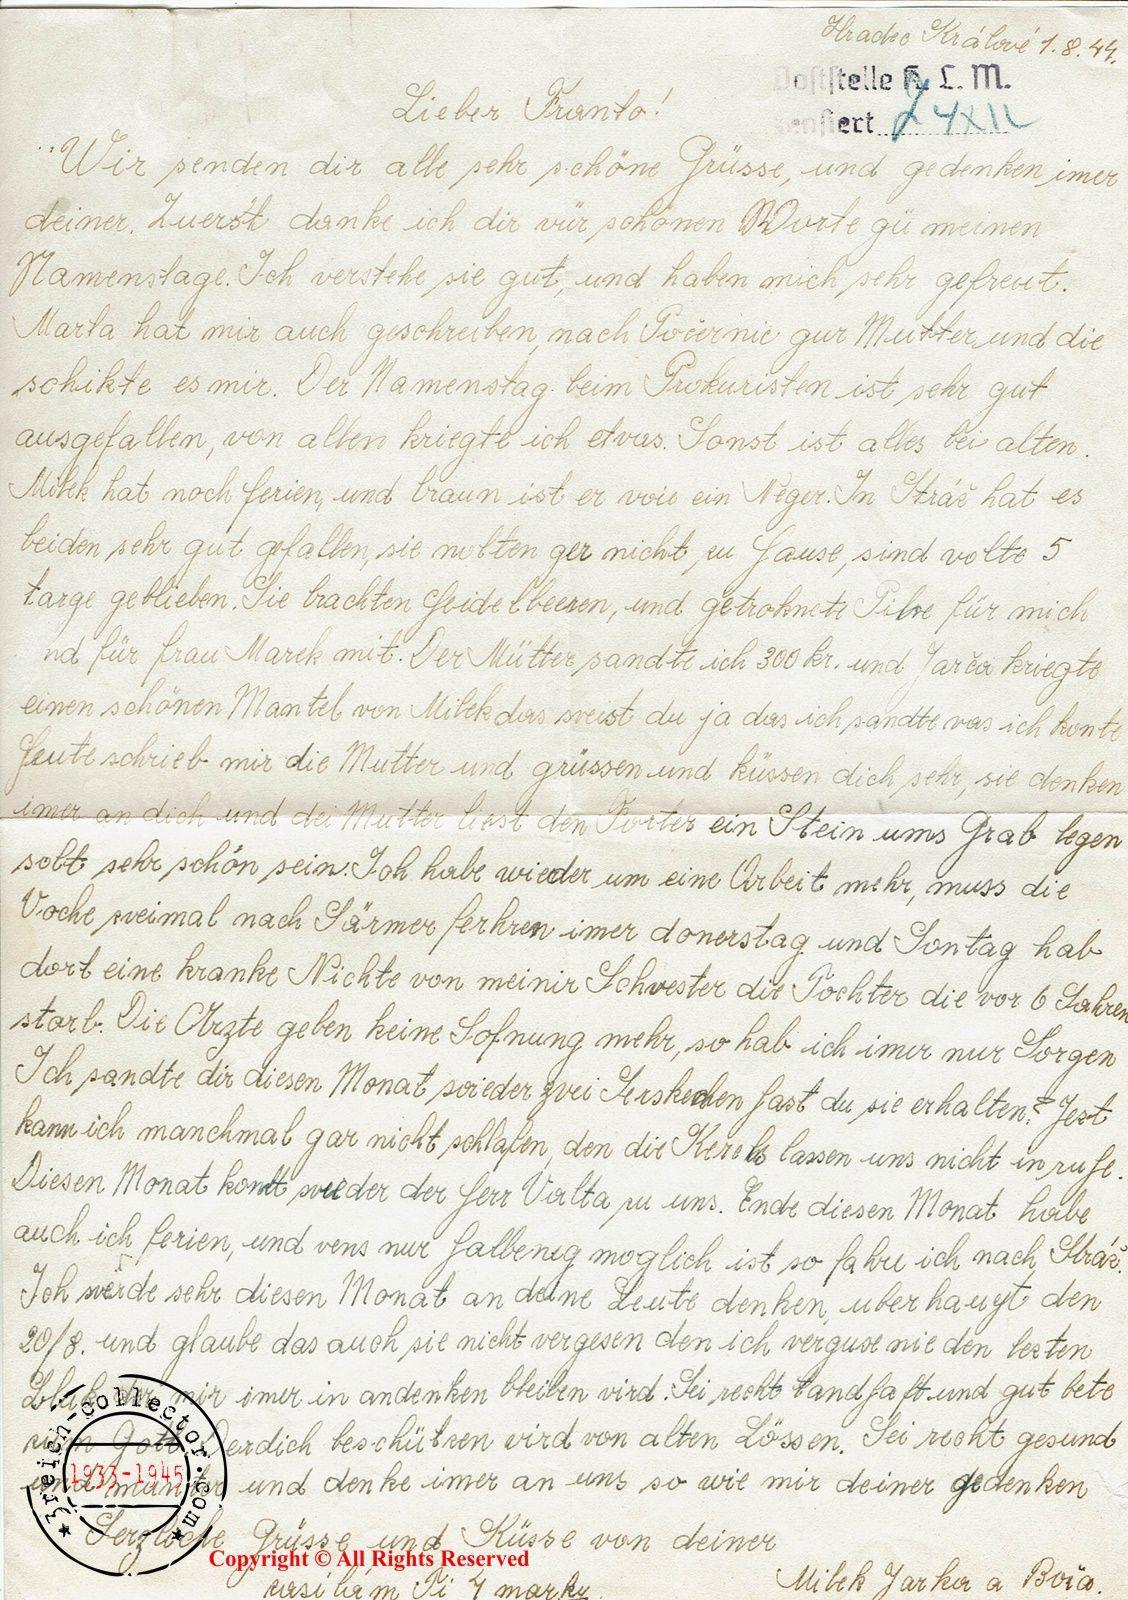 Hradec Králové 1.8.44.
Poststelle K. L. M.
zensiert
Lieber Franto!
Wir senden dir alle sehr schöne Grüsse, und gedenken imer
deiner. Zuerst danke ich dir vür schönen Worte gü meinen
Namenstage. Ich verstehe sie gut, und haben mich sehr gefreut.
Marta hat mir auch geschreiben, nach Počernic gur Mutter und die
schikte es mir. Der Namenstag beim Prokuristen ist sehr gut
ausgefallen, von allen kriegte ich etvas. Sonst ist alles bei alten.
Milek hat noch ferien, und braun ist er voie ein Neger. In Stráž hat es
beiden sehr gut gefallen, sie nolten ger nicht zu Hause, sind volte 5
targe geblieben. Sie brachten Heidelbeeren, und getroknete Pilve für mich
nd für frau Marek mit. Der Mütter sandte ich 300 kr. und Jarča kriegte
einen schönen Mantel von Milek das weist du ja das ich sandte vas ich konte
Heute schrieb mir die Mutter und grüssen und küssen dich sehr, sie denken
imer an dich und dei Mutter liest den Forter ein Stein ums Grab legen
solt sehr schön sein. Ich habe wieder um eine Arbeit mehr, muss die
Voche zveimal nach imer donerstag und Sontag hab
dort eine kranke Nichte von meinir Schvester die Tochter die vor 6 Jahren
starb. Die Arzte geben keine Hofnung mehr, so hab ich imer nur Sorgen
Ich sandte dir diesen Monat wieder zvei hast du sie erhalten? Jezt
kann ich manchmal gar nicht schlafen, den die lassen uns nicht in ruhe.
Diesen Monat komt wieder der Herr Valta zu uns. Ende diesen Monat habe
auch ich ferien, und vens nur halbenig moglich ist so fahre ich nach Stráž.
Ich werde sehr diesen Monat an deine Leute denken, uberhaupt den
20/8. und glaube das auch sie nicht vergesen den ich verguse nie den lezten
Blick der mir imer in andenken bleiben vird. Sei recht tandhaft und gut bete
zum Gott derdich beschützen vird von alten Lössen. Sei recht gesund
und munter und denke imer an uns so wie mir deiner gedenken
Herzliche Grüsse und Küsse von deiner
zasílám Ti 4 marky Milek Jarka a Boža.
3reich-collector.com
1933-1945
Copyright © All Rights Reserved